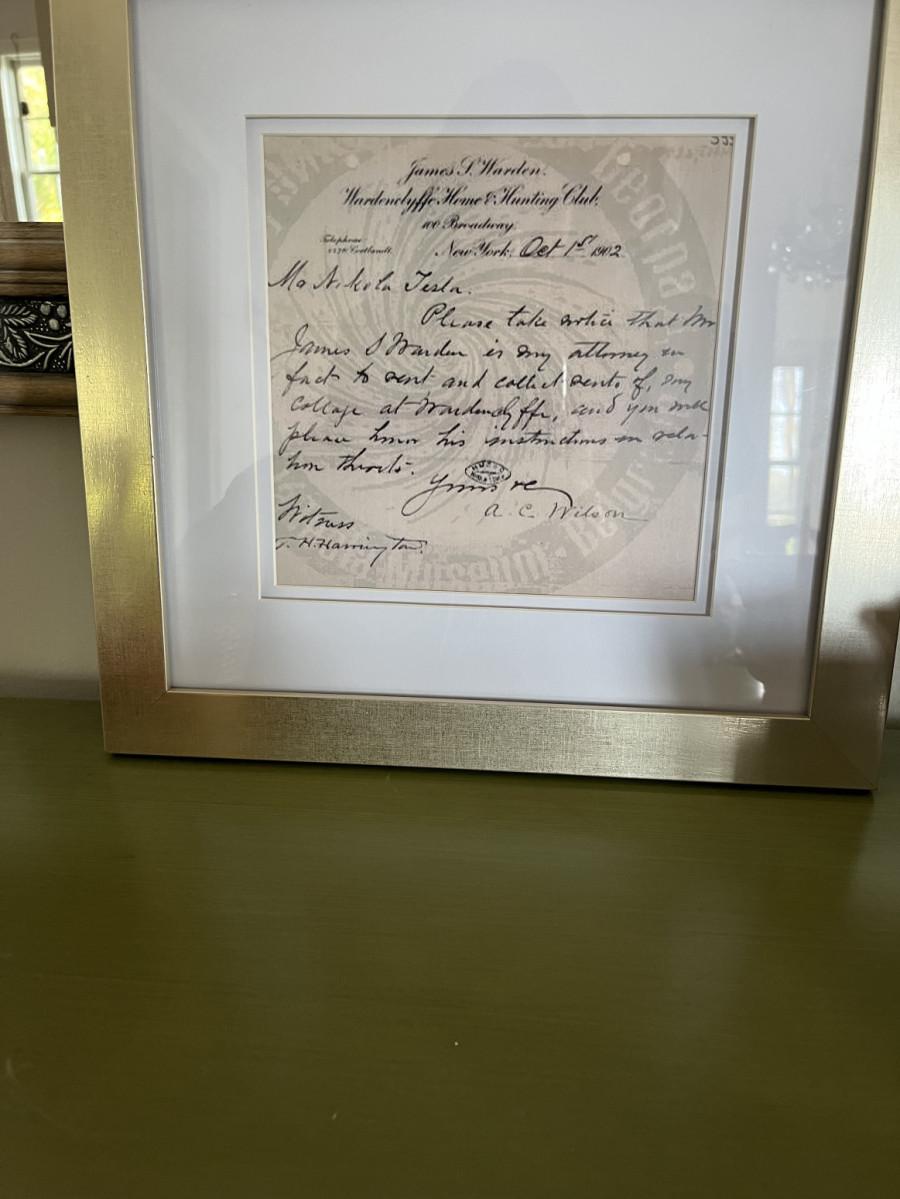 James S. Warden.
Wardenclyffe Home & Hunting Club.
100 Broadway.
Telephone
Cortlandt.
New York, Oct 1st 1902
Mr Nikola Tesla.
Please take notice that Mr
James S Warden is my attorney in
fact to rent and collect rents of, my
cottage at Wardenclyffe, and you will
please honor his instructions in rela-
tion thereto.
Yours ve
A. C. Wilson
Witness
T. H. Harrington